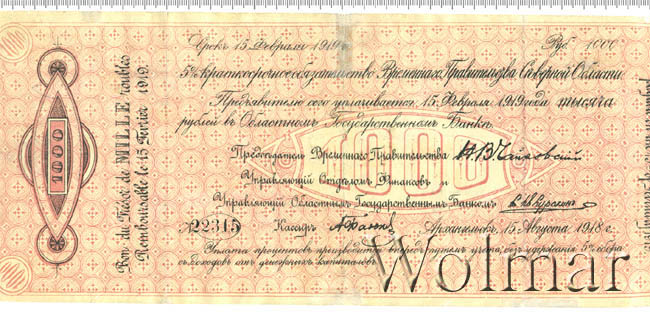 Срокъ 15 Февраля 1919 г. Руб. 1000
5% краткосрочное обязательство Временнаго Правительства Сѣверной Области
Предъявителю сего уплачивается 15 Февраля 1919 года тысяча
рублей въ Областномъ Государственномъ Банкѣ.
Предсѣдатель Временнаго Правительства Н. В. Чайковскій
Управляющій Отдѣломъ Финансовъ и
Управляющій Областнымъ Государственнымъ Банкомъ
№ 22315 Кассиръ Архангельскъ, 15 Августа 1918 г.
Уплата процентовъ производится впередъ путемъ учета, безъ удержанія 5% сбора
съ доходовъ отъ денежныхъ капиталовъ.
1000
1000
Bon du Trésor de MILLE roubles
Remboursable le 15 Février 1919.
Wolmar